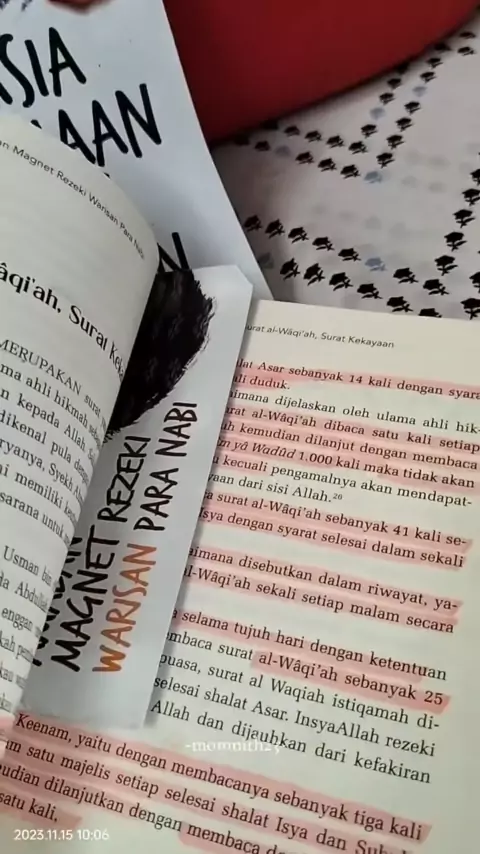 SIA
AAN
an Magnet Rezeki Warisan Para Nabi
âqi'ah, Surat Keka
MERUPAKAN surat
ma ahli hikmah
an kepada Allah
dikenal pula
aryanya, Syekh
ni memiliki
sarana untuk
Usman bin
da Abdullah
enggan
MAGNET REZEKI
WARISAN PARA NABI
urat al-Wâqi'ah, Surat Kekayaan
lat Asar sebanyak 14 kali dengan syara
ali duduk.
aimana dijelaskan oleh ulama ahli hik-
urat al-Wâqi'ah dibaca satu kali setiap
h kemudian dilanjut dengan membaca
yâ Wadûd 1.000 kali maka tidak akan
i kecuali pengamalnya akan mendapat-
yaan dari sisi Allah.26
a surat al-Wâqi'ah sebanyak 41 kali se-
Isya dengan syarat selesai dalam sekali
aimana disebutkan dalam riwayat, ya-
al-Wâqi'ah sekali setiap malam secara
a selama tujuh hari dengan ketentuan
mbaca surat al-Wâqi'ah sebanyak 25
puasa, surat al Waqiah istiqamah di-
selesai shalat Asar. InsyaAllah rezeki
Allah dan dijauhkan dari kefakiran
-momnith25
Keenam, yaitu dengan membacanya sebanyak tiga kali
m satu majelis setiap selesai shalat Isya dan Sub
udian dilanjutkan dengan membaca do
satu kali,
2023.11.15 10:06